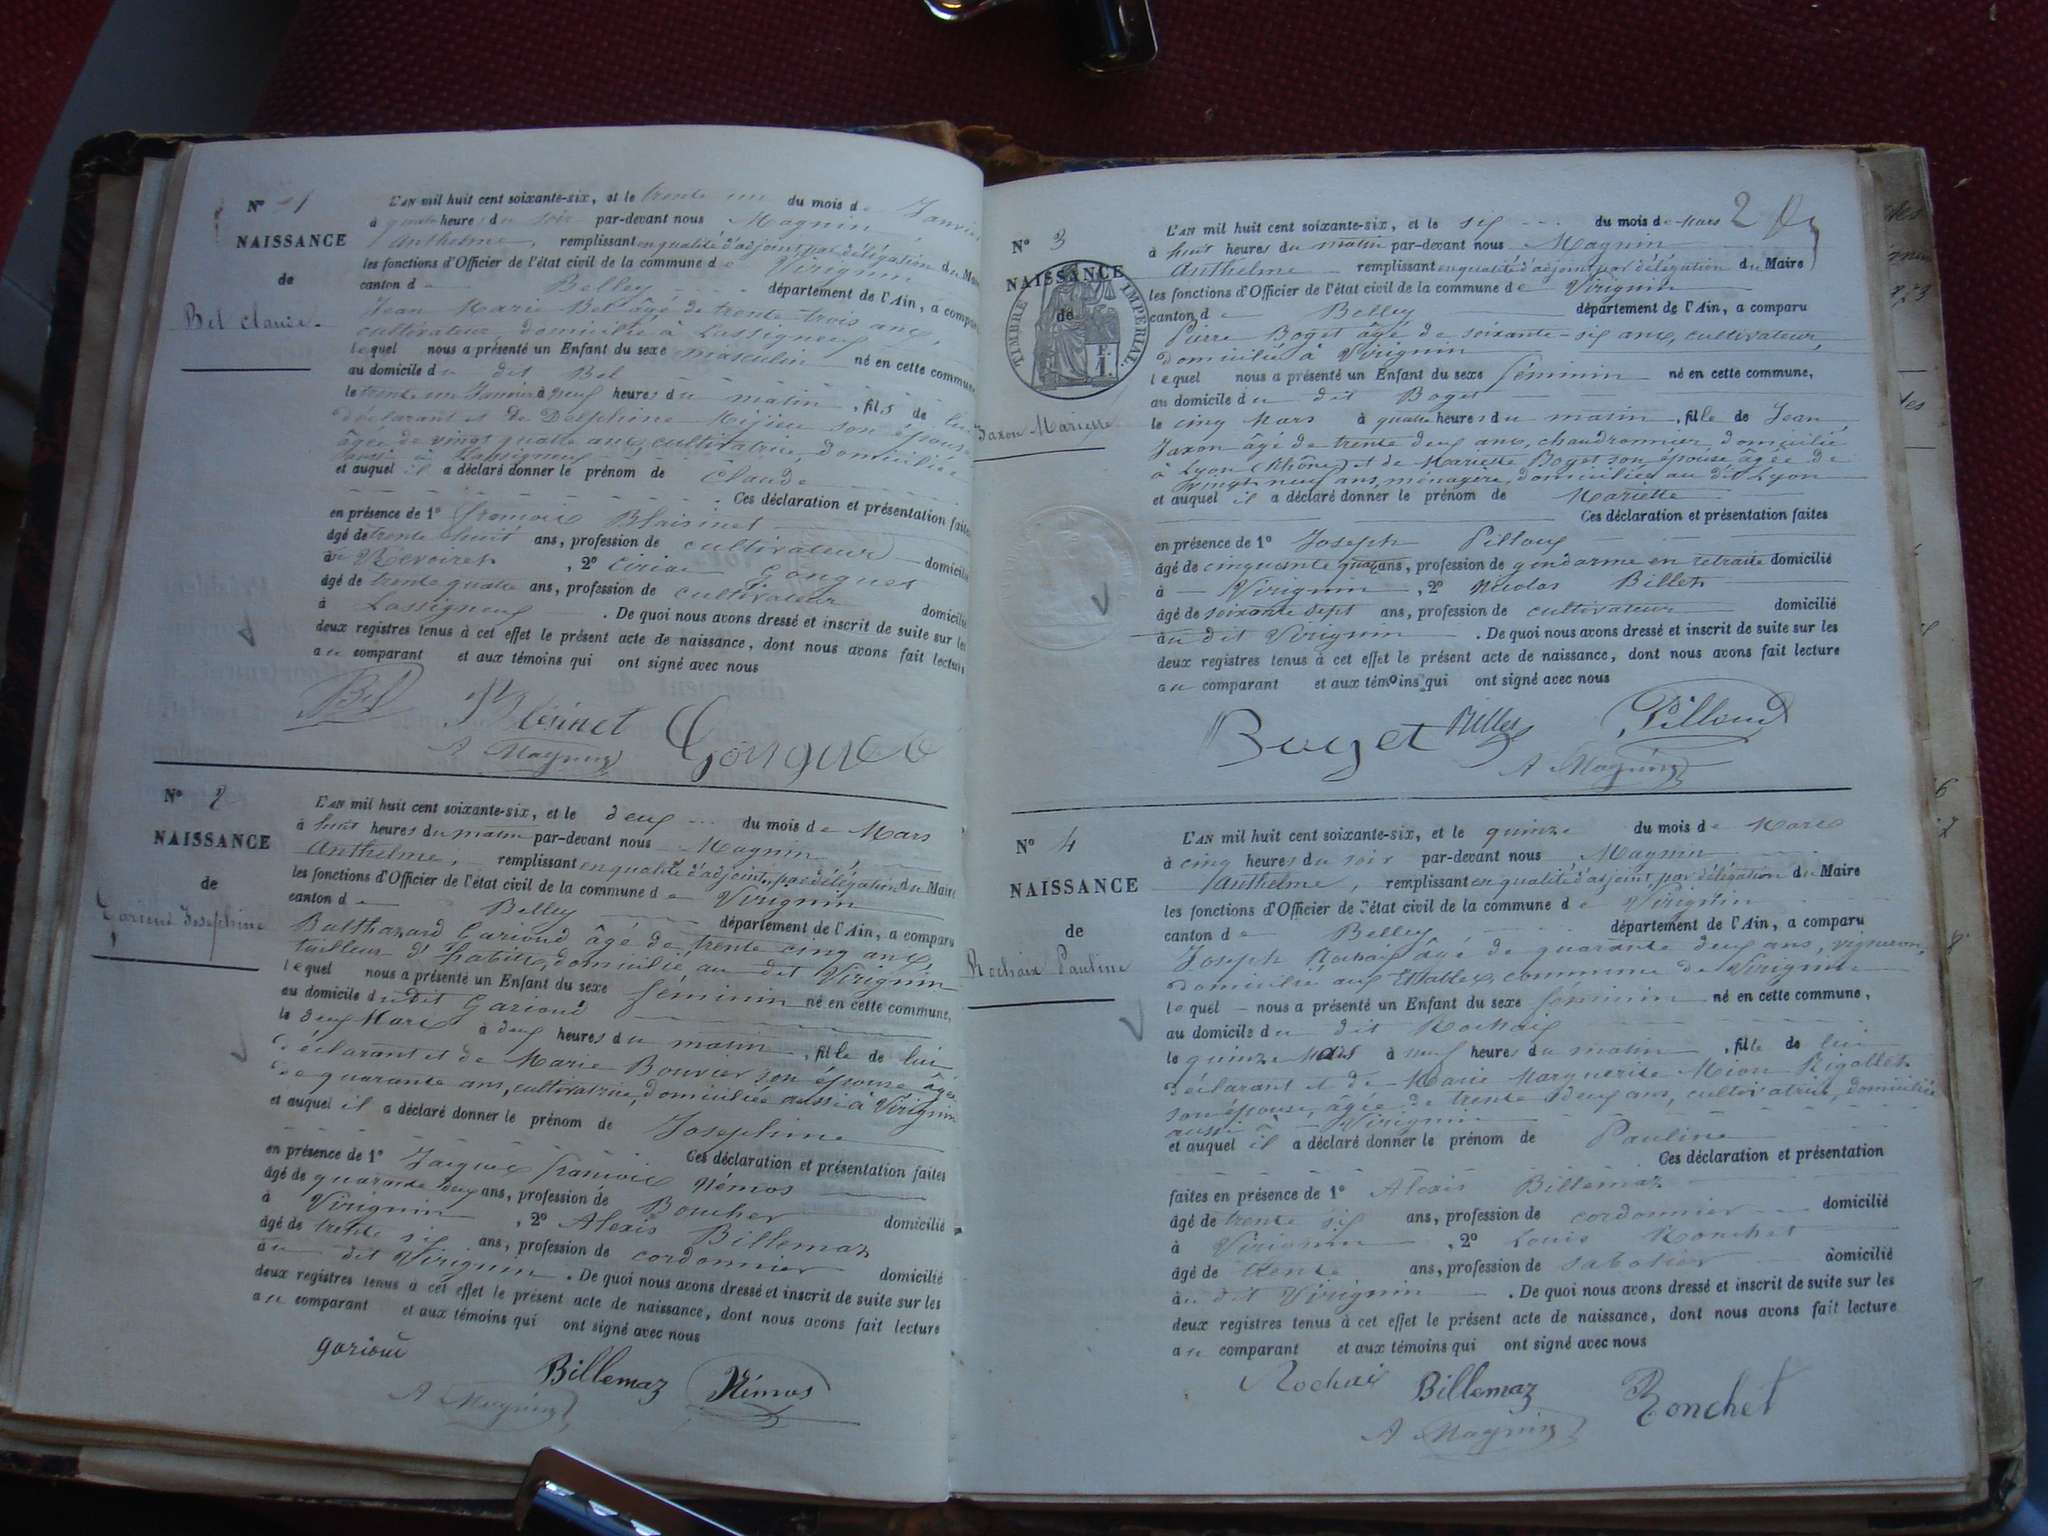 N° 1
NAISSANCE
de
Bel Claude
L'AN mil huit cent soixante-six, et le trente un du mois de Janvier
à quatre heures du soir par-devant nous Magnin
Anthelme, remplissant en qualité d'adjoint par délégation du Maire
les fonctions d'Officier de l'état civil de la commune de Virignin
canton de Belley département de l'Ain, a comparu
Jean Marie Bel âgé de trente trois ans,
cultivateur, domicilié à Lassigneux,
lequel nous a présenté un Enfant du sexe masculin né en cette commune
au domicile du dit Bel
le trente un Janvier à neuf heures du matin, fils de lui
déclarant et de Delphine son épouse
âgée de vingt quatre ans, cultivatrice, domiciliée
aussi à Lassigneux
et auquel il a déclaré donner le prénom de Claude
Ces déclaration et présentation faites
en présence de 1° François Blaisinet
âgé de trente huit ans, profession de cultivateur domicilié
à 2° Gonguet
âgé de trente quatre ans, profession de cultivateur domicilié
à Lassigneux. De quoi nous avons dressé et inscrit de suite sur les
deux registres tenus à cet effet le présent acte de naissance, dont nous avons fait lecture
au comparant et aux témoins qui ont signé avec nous
Bel
A Magnin
N° 2
NAISSANCE
de
Gарioud Josephine
L'AN mil huit cent soixante-six, et le deux du mois de Mars
à huit heures du matin par-devant nous Magnin
Anthelme, remplissant en qualité d'adjoint, par délégation du Maire
les fonctions d'Officier de l'état civil de la commune de Virignin
canton de Belley département de l'Ain, a comparu
Balthazard Garioud âgé de trente cinq ans,
tailleur d'habits, domicilié au dit Virignin
lequel nous a présenté un Enfant du sexe féminin né en cette commune,
au domicile du dit Garioud
le deux Mars à deux heures du matin, fille de lui
déclarant et de Marie Bouvier son épouse âgée
de quarante ans, cultivatrice, domiciliée aussi à Virignin
et auquel il a déclaré donner le prénom de Josephine
Ces déclaration et présentation faites
en présence de 1° Jacques François Némos
âgé de quarante deux ans, profession de Boucher domicilié
à Virignin, 2° Alexis Billemaz
âgé de trente six ans, profession de cordonnier domicilié
au dit Virignin. De quoi nous avons dressé et inscrit de suite sur les
deux registres tenus à cet effet le présent acte de naissance, dont nous avons fait lecture
au comparant et aux témoins qui ont signé avec nous
garioud
Billemaz Némos
A Magnin
2
N° 3
NAISSANCE
de
TIMBRE IMPERIAL
Jaxon Mariette
L'AN mil huit cent soixante-six, et le six du mois de Mars
à huit heures du matin par-devant nous Magnin
Anthelme remplissant en qualité d'adjoint par délégation du Maire
les fonctions d'Officier de l'état civil de la commune de Virignin
canton de Belley département de l'Ain, a comparu
Pierre Boget âgé de soixante-six ans, cultivateur,
domicilié à Virignin
lequel nous a présenté un Enfant du sexe féminin né en cette commune,
au domicile du dit Boget
le cinq Mars à quatre heures du matin, fille de Jean
Jaxon âgé de trente deux ans, chaudronnier, domicilié
à Lyon (Rhône) et de Mariette Boget son épouse âgée de
vingt neuf ans, ménagère, domiciliée au dit Lyon
et auquel il a déclaré donner le prénom de Mariette
Ces déclaration et présentation faites
en présence de 1° Joseph Pilloux
âgé de cinquante quatre ans, profession de gendarme en retraite domicilié
à Virignin, 2° Nicolas Billet
âgé de soixante sept ans, profession de cultivateur domicilié
au dit Virignin. De quoi nous avons dressé et inscrit de suite sur les
deux registres tenus à cet effet le présent acte de naissance, dont nous avons fait lecture
au comparant et aux témoins qui ont signé avec nous
Buget Billet Pilloud
A Magnin
N° 4
NAISSANCE
de
Rochaix Pauline
L'AN mil huit cent soixante-six, et le quinze du mois de Mars
à cinq heures du soir par-devant nous Magnin
Anthelme, remplissant en qualité d'adjoint, par délégation du Maire
les fonctions d'Officier de l'état civil de la commune de Virignin
canton de Belley département de l'Ain, a comparu
Joseph Rochaix âgé de quarante deux ans, vigneron,
domicilié aux commune de Virignin
lequel nous a présenté un Enfant du sexe féminin né en cette commune,
au domicile du dit Rochaix
le quinze Mars à neuf heures du matin, fille de lui
déclarant et de Marie Marguerite Mion Rigollet
son épouse, âgée de trente deux ans, cultivatrice, domiciliée
aussi à Virignin
et auquel il a déclaré donner le prénom de Pauline
Ces déclaration et présentation
faites en présence de 1° Alexis Billemaz
âgé de trente six ans, profession de cordonnier domicilié
à Virignin, 2° Louis Ronchet
âgé de trente ans, profession de sabotier domicilié
au dit Virignin. De quoi nous avons dressé et inscrit de suite sur les
deux registres tenus à cet effet le présent acte de naissance, dont nous avons fait lecture
au comparant et aux témoins qui ont signé avec nous
Rochaix Billemaz Ronchet
A Magnin